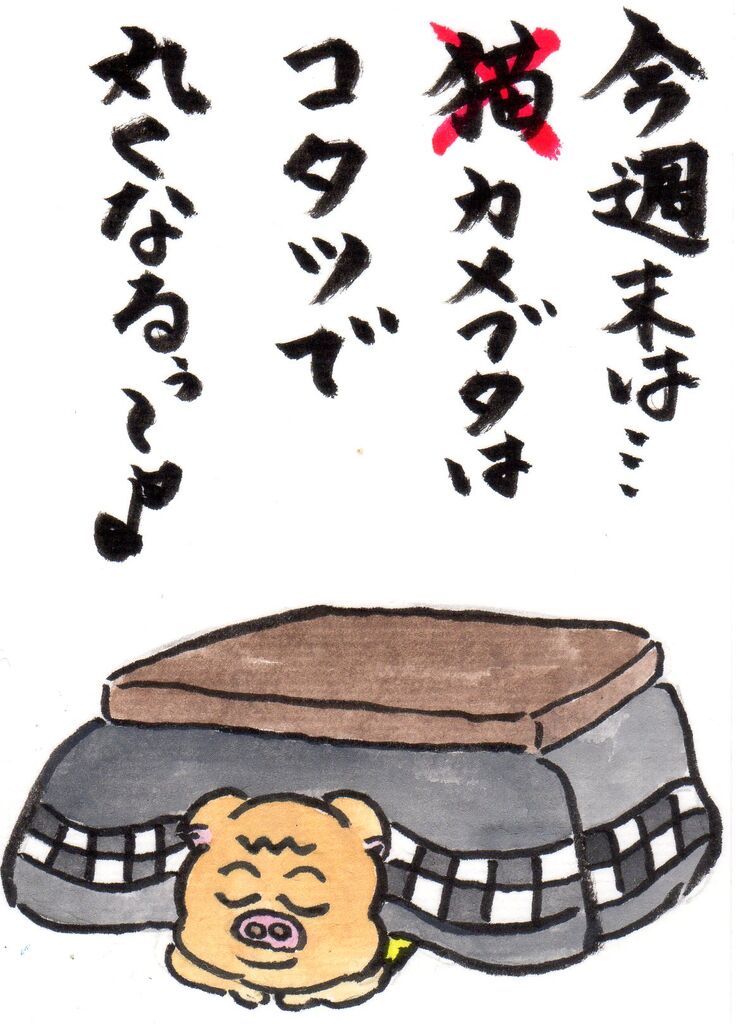 今週末は…
猫カメブタは
コタツで
丸くなるぅ〜♪